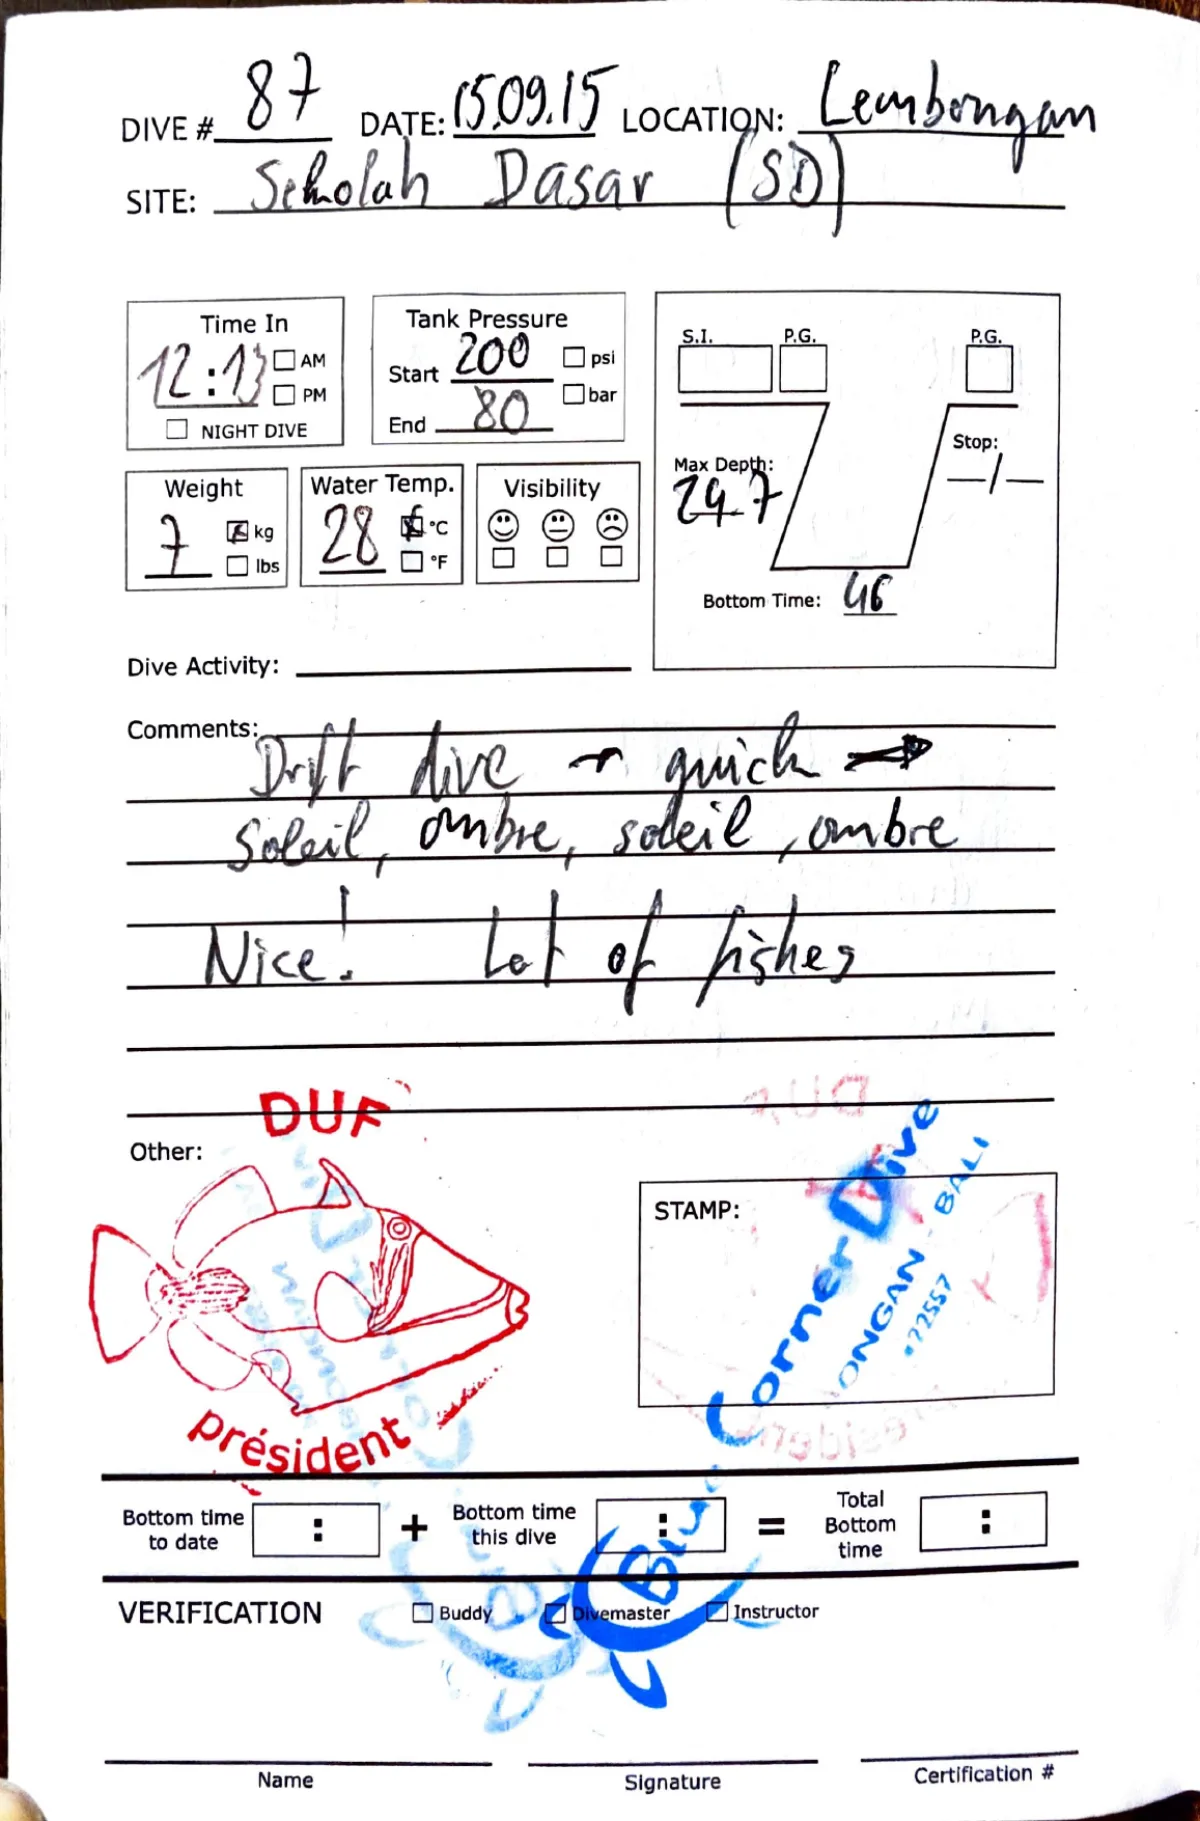 DIVE # 87 DATE: 15.09.15 LOCATION: Lembongan
SITE: Sekolah Dasar (SD)
Time In
12:13 AM
PM
NIGHT DIVE
Tank Pressure
Start 200 psi
End 80 bar
S.I. P.G. P.G.
Max Depth:
24.7
Stop:
—/—
Bottom Time: 46
Weight
7 kg
lbs
Water Temp.
28 °C
°F
Visibility
Dive Activity:
Comments:
Drift dive → quick →
Soleil, ombre, soleil, ombre
Nice! Lot of fishes
DUF
Other:
président
STAMP:
Blue Corner Dive
ONGAN - BALI
72557
Bottom time to date : + Bottom time this dive : = Total Bottom time :
VERIFICATION Buddy Divemaster Instructor
Name Signature Certification #